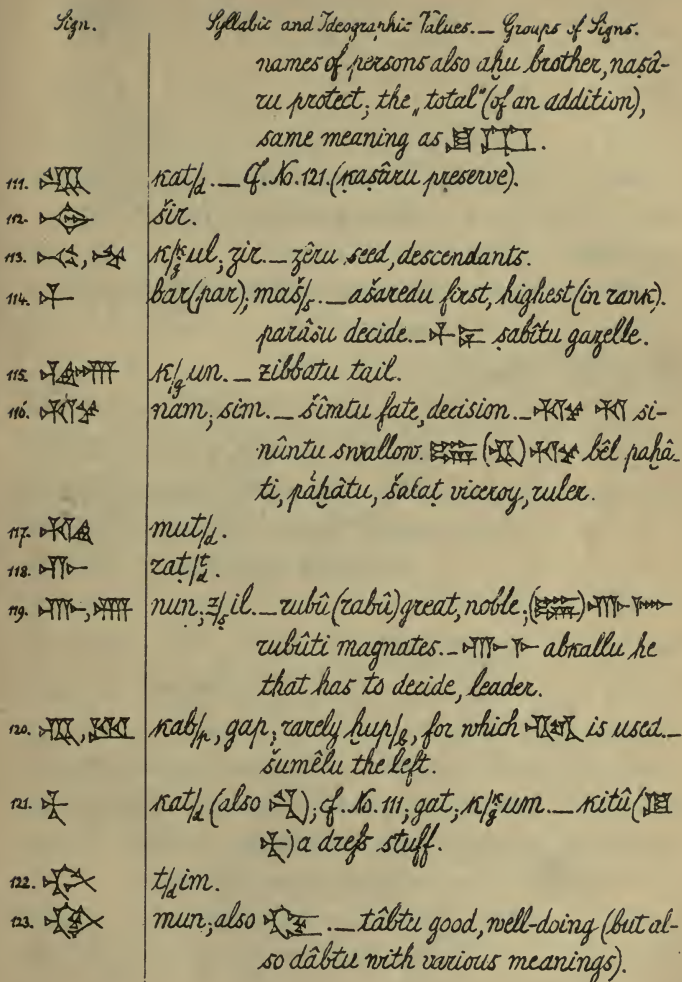 Sign.
Syllabic and Ideographic Values. _ Groups of Signs.
names of persons also aḫu brother, naṣâ-
ru protect; the „total" (of an addition),
same meaning as
111. kat/d. _ Cf. No. 121. (kaṣâru preserve).
112. šir.
113. k/ḳ/g ul; zir. _ zêru seed, descendants.
114. bar (par); maš/s. _ ašaredu first, highest (in rank).
parâsu decide. _ ṣabîtu gazelle.
115. k/g un. _ zibbatu tail.
116. nam; sim. _ šîmtu fate, decision. _ si-
nûntu swallow. bêl paḫâ-
ti, pâḫâtu, šakaṭ viceroy, ruler.
117. mut/d.
118. rat/ṭ/d.
119. nun; z/ṣ il. _ rubû (rabû) great, noble;
rubûti magnates. _ abkallu he
that has to decide, leader.
120. kab/p, gap; rarely ḫup/b, for which is used. _
šumêlu the left.
121. kat/d (also ); cf. No. 111; gat; k/ḳ/g um. _ kitû (
) a dress stuff.
122. t/d im.
123. mun; also . _ tâbtu good, well-doing (but al-
so dâbtu with various meanings).